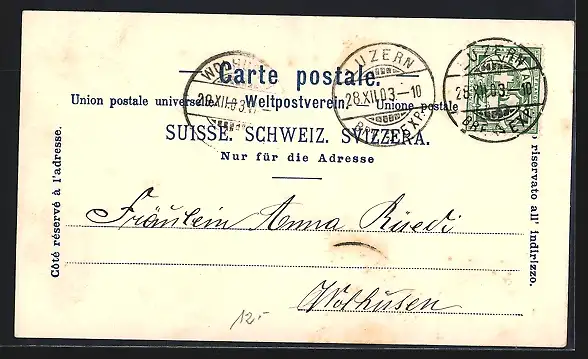 Carte postale.
Union postale universelle. Weltpostverein. Unione postale
SUISSE. SCHWEIZ. SVIZZERA.
Nur für die Adresse
Côté réservé à l'adresse.
riservato all' indirizzo.
LUZERN
28.XII.03—10
BRF. EXP.
LUZERN
28.XII.03—10
BRF. EXP.
29.XII.03.
Fräulein Anna Rüedi
Wolhusen
12.-